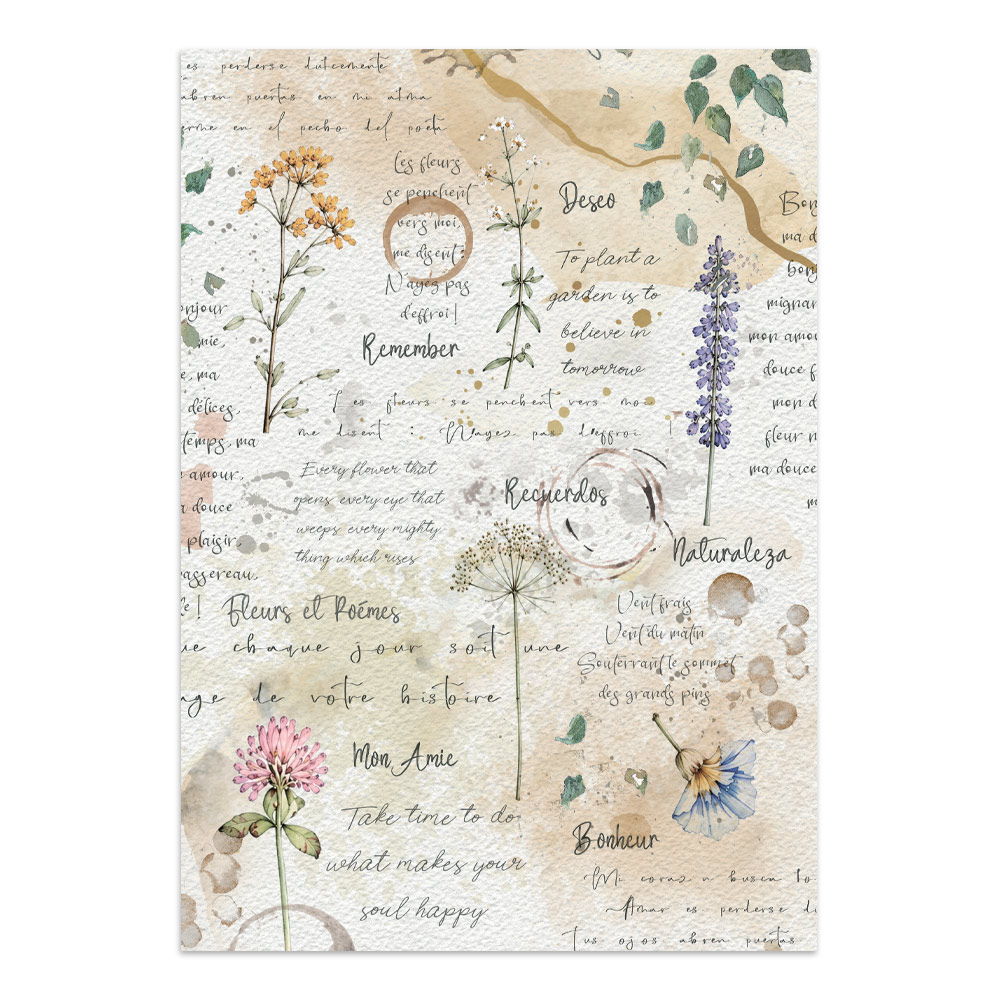 es perderse dulcemente
abren puertas en mi alma
erme en el pecho del poeta
Les fleurs
se penchent
vers moi,
me disent :
N'ayez pas
d'effroi!
Deseo
To plant a
garden is to
believe in
tomorrow
Bon
ma d
bonj
mignar
mon amou
douce f
mon d
fleur n
ma douce
m
onjour
mie,
e, ma
délices,
temps, ma
amour,
a douce
plaisir,
passereau,
le!
Remember
Les fleurs se penchent vers moi
me disent : N'ayez pas d'effroi !
Every flower that
opens, every eye that
weeps, every mighty
thing which rises
Recuerdos
Naturaleza
Fleurs et Poémes
ue chaque jour soit une
age de votre histoire
Vent frais
Vent du matin
Souterrant le sommet
des grands pins
Mon Amie
Take time to do
what makes your
soul happy
Bonheur
Mi coraz n busca lo
Amar es perderse du
Tus ojos abren puertas